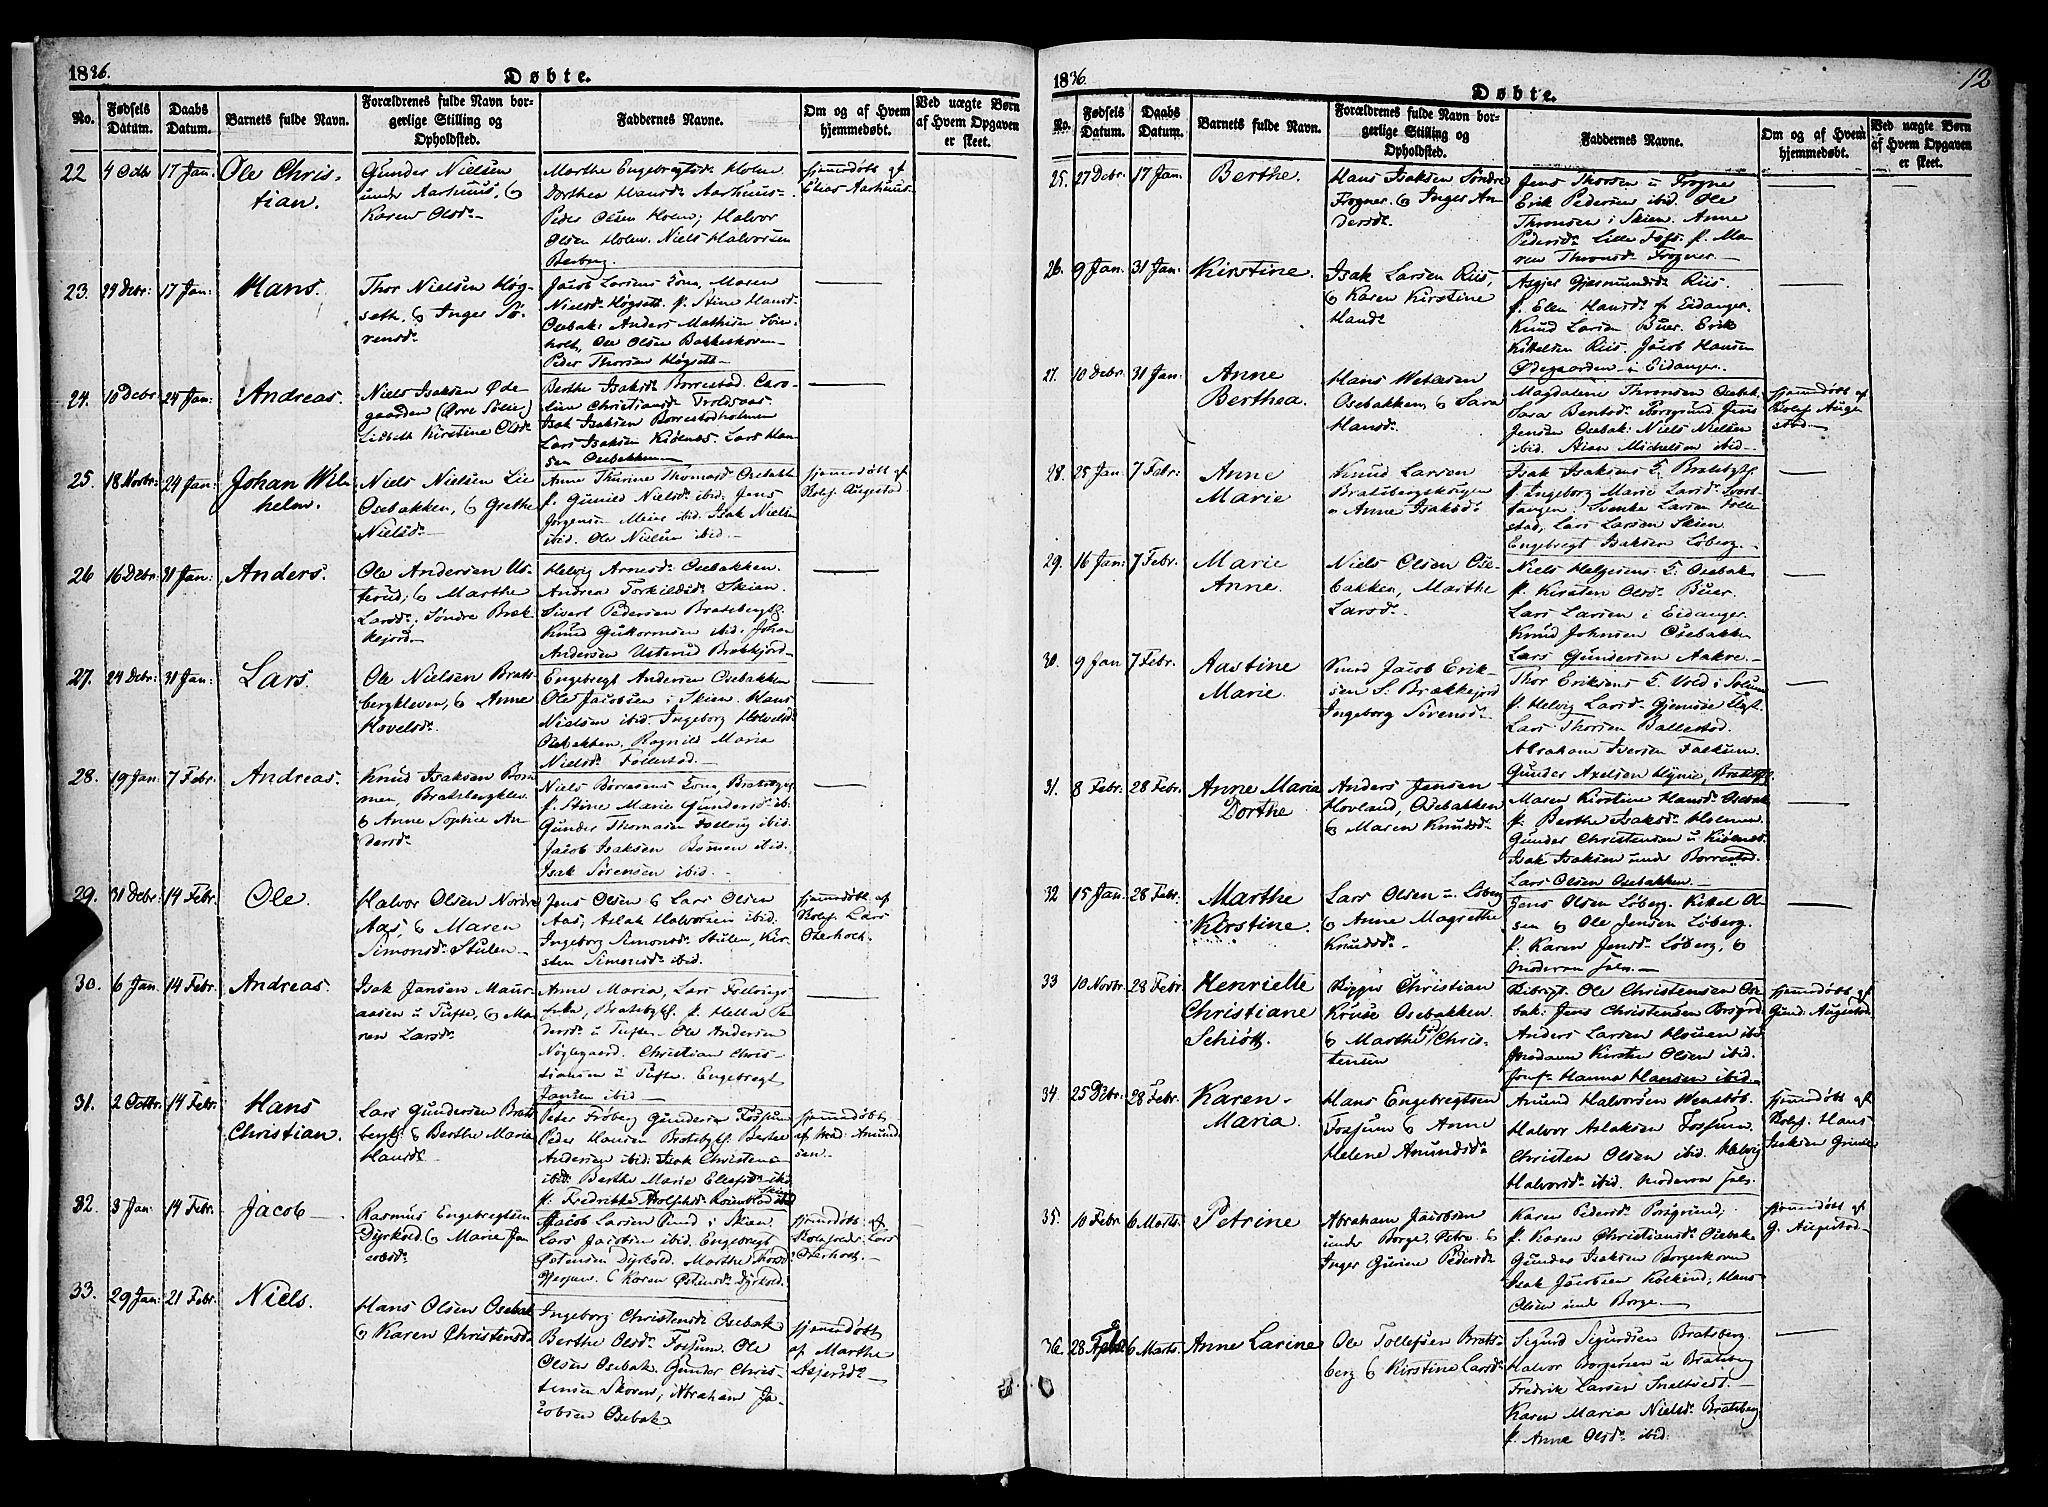 1836.
Døbte.
No.
Fødsels Datum.
Daabs Datum.
Barnets fulde Navn.
Forældrenes fulde Navn borgerlige Stilling og Opholdsted.
Faddernes Navne.
Om og af Hvem hjemmedøbt.
Ved uægte Børn af Hvem Opgaven er skeet.
22 4 Octbr 17 Jan: Ole Chris-
tian.
Gunder Nielsen
under Aarhuus, &
Karen Olsd.
Marthe Engebregtsd. Holm
Dorthea Hansd. Aarhuus
Peder Olsen Holm, Halvor
Olsen Holm. Niels Halvorsen
hjemmedøbt af
Elias Aarhuus
23. 24 Debr: 17 Jan: Hans.
Thor Nielsen Høg-
seth, & Inger Sø-
rensd.
Jacob Larsens Kona, Maren
Nielsd. Høgseth. p. Stine Hansd.
Osebak: Anders Mathisen
Ole Olsen Bakkeskoven
Peder Thorsen Høgseth
24. 10 Debr: 24 Jan: Andreas.
Niels Isaksen Øde-
gaarden
Lisbeth Kirstine Olsd.
Berthe Isaksd. Borrestad. Caro-
line Christiansd. Troldsaas
Isak Isaksen Borrestadholmen
Lars Isaksen Kiønes. Lars Han-
sen Osebakken
25. 18 Novbr: 24 Jan: Johan Wil-
helm.
Niels Nielsen Lie
Osebakken, & Grethe
Nielsd.
Anne Thurine Thomasd. Osebakk.
p. Gunild Nielsd. ibid. Jens
Jørgensen Meine ibid. Isak Nielsen
ibid. Ole Nielsen ibid.
hjemmedøbt af
Augestad
26 16 Debr: 31 Jan: Anders.
Ole Andersen Us-
terud, & Marthe
Larsd., Søndre Bræk-
kejord
Helvig Arnesd. Osebakken.
Andrea Torkildsd. Skien
Sivert Pedersen Bratsbergkl.
Knud Guttormsen ibid. Johan
Andersen Usterud Brækkejord
27. 24 Debr: 31 Jan: Lars.
Ole Nielsen Brats-
bergkleven, & Anne
Hovelsd.
Engebregt Andersen Osebakken
Ole Jacobsen i Skien. Hans
Nielsen ibid. Ingeborg Hovelsd.
Osebakken, Ragnild Maria
Nielsd. Follestad.
28. 19 Jan: 7 Febr: Andreas.
Knud Isaksen Bom-
men, Bratsbergklev.
& Anne Sophie An-
dersd.
Niels Børresens Kona, Bratsbgkl.
p. Stine Marie Gundersd. ib.
Gunder Thomasen ibid.
Jacob Isaksen Bommen ibid.
Isak Sørensen ibid.
29. 31 Debr: 14 Febr. Ole
Halvor Olsen Nordre
Aas, & Maren
Simonsd. Stulen
Jens Olsen & Lars Olsen
Aas, Aslak Halvorsen ibid.
Ingeborg Simonsd. Stulen, Kir-
sten Simonsd. ibid.
hjemmedøbt af
Lars
Oterholt.
30. 6 Jan 14 Febr. Andreas.
Isak Jansen Maur-
aasen u Tufte, & Ma-
ren Larsd.
Anne Maria, Lars
Bratsbgkl. p. Hella Pe-
dersd. u Tufte. Ole Andersen
Nøglegaard. Christian Chris-
tiansen u Tufte. Engebregt
Jansen ibid
31. 2 Octbr: 14 Febr. Hans
Christian.
Lars Gundersen Brats-
berg: & Berthe Maria
Hansd.
Peter Frøberg Gundersen Fossum
Peder Hansen Bratsbgkl. Berthe
Andersen ibid. Isak Christens-
ibid. Berthe Marie ibid.
p. Fredrikke Adolphsd. Rosenblad
hjemmedøbt
af Amund-
sen.
32. 3 Jan 14 Febr. Jacob
Rasmus Engebregtsen
Dyrkold, & Marie Ja-
cobsd.
Jacob Larsen i Skien
Lars Jacobsen ibid. Engebregt
Østensen Dyrkold. Marthe
& Karen Østensd. Dyrkold.
hjemmedøbt af
Lars
Oterholt.
33. 29 Jan: 21 Febr. Niels.
Hans Olsen Osebak
& Karen Christensd.
Ingeborg Christensd. Osebak
Berthe Olsd. Fossum. Ole
Olsen Osebak. Gunder Chris-
tensen Skoven, Abraham Ja-
cobsen Osebak.
hjemmedøbt
af Marthe
Asjersd.
1836.
Døbte.
12
No.
Fødsels Datum.
Daabs Datum.
Barnets fulde Navn.
Forældrenes fulde Navn borgerlige Stilling og Opholdsted.
Faddernes Navne.
Om og af Hvem hjemmedøbt.
Ved uægte Børn af Hvem Opgaven er skeet.
25. 27 Debr. 17 Jan. Berthe.
Hans Isaksen Søndre
Frogner. & Inger An-
dersd.
Jens Thorsen u Frogner
Erik Pedersen ibid. Ole
Thronsen i Skien. Anne
Pedersd. Lille Fos. p. Ma-
ren Thronsd. Frogner.
26. 9 Jan. 31 Jan: Kirstine.
Isak Larsen Riis,
& Karen Kirstine
Hansd.
Asgjer Gjermundsen Riis.
p. Elen Hansd. fr Eidanger.
Knud Larsen Buer. Erik
Kittelsen Riis. Jacob Hansen
Ødegaarden i Eidanger.
27. 10 Debr. 31 Jan: Anne
Berthea.
Hans Petersen
Osebakken, & Sara
Hansd.
Magdalene Thronsen Osebak
Sara Bentsd. Porsgrund. Jens
Jensen Osebak: Niels Nielsen
ibid. Michelsen ibid.
hjemmedøbt af
Auge-
stad.
28. 25 Jan 7 Febr: Anne
Marie
Knud Larsen
Bratsbergskogen
Anne Isaksd.
Isak Isaksens K. Bratsbgkl.
p. Ingeborg Marie Larsd.
Svenke Larsen Folle-
stad, Lars Larsen Skien
Engebregt Isaksen Løberg.
29. 16 Jan: 7 Febr. Marie
Anne.
Niels Olsen Ose-
bakken, Marthe
Larsd.
Niels Helgesens K. Osebak
p. Kirsten Olsd. Buer.
Lars Larsen i Eidanger.
Knud Johnsen Osebakken
Lars Gundersen Aakre.
30. 9 Jan 7 Febr. Aastine
Marie.
Knud Jacob Erik-
sen S: Brækkejord
Ingeborg Sørensd.
Thor Eriksens K. Vold i Solum
p. Helvig Larsd. Gjemsøe
Lars Thorsen Ballestad.
Abraham Iversen Falkum.
Gunder Axelsen Hynie, Bratsbgkl.
31. 8 Febr. 28 Febr. Anne Maria
Dorthe
Anders Jensen
Hovland, Osebakken
& Maren Knudsd.
Maren Kirstine Hansd. Osebak
p. Berthe Isaksd. Holmen
Gunder Christensen u Kiønes
Isak Isaksen under Borrestad.
Lars Olsen Osebakken.
32 15 Jan. 28 Febr. Marthe
Kirstine.
Lars Olsen u Løberg
& Anne Magrethe
Knudsd.
Jens Olsen Løberg. Kittel Ol-
sen & Ole Jensen Løberg.
p. Karen Jensd. Løberg, &
Moderen selv.
33 10 Novbr. 28 Febr. Henriette
Christiane
Schiøtt.
Skipper Christian
Kruse Osebakken.
& Marthe Chris-
tensen
Ole Christensen Ose-
bak: Jens Christensen Brsgrd
Anders Larsen ibid
Madam Kirsten Olsen ibid.
Jomf. Hanna Hansen ibid.
hjemmedøbt af
Gund. Augestad
34. 25 Debr: 28 Febr. Karen
Maria.
Hans Engebregtsen
Fossum & Anne
Helene Amundsd.
Amund Halvorsen Wenstøb.
Halvor Aslaksen Fossum.
Christen Olsen ibid. Helvig
Halvorsd. ibid. Moderen selv.
hjemmedøbt af
Hans
Isaksen
35. 10 Febr. 6 Marts. Petrine
Abraham Jacobsen
under Borge. &
Inger Gurine Pedersd.
Karen Pedersd. Porsgrund,
p. Karen Christiansd. Osebak
Gunder Isaksen Borgeskoven
Isak Jacobsen Hans
Olsen under Borge.
hjemmedøbt af
G. Augestad.
36. 28 6 Marts. Anne Larine
Ole Tollefsen Brats-
berg & Kirstine Larsd.
Sigurd Sigurdsen Bratsberg.
Halvor Borgersen u Bratsberg
Fredrik Larsen Sneltvedt.
Karen Maria Nielsd. Bratsberg
p. Anne Olsd. ibid.